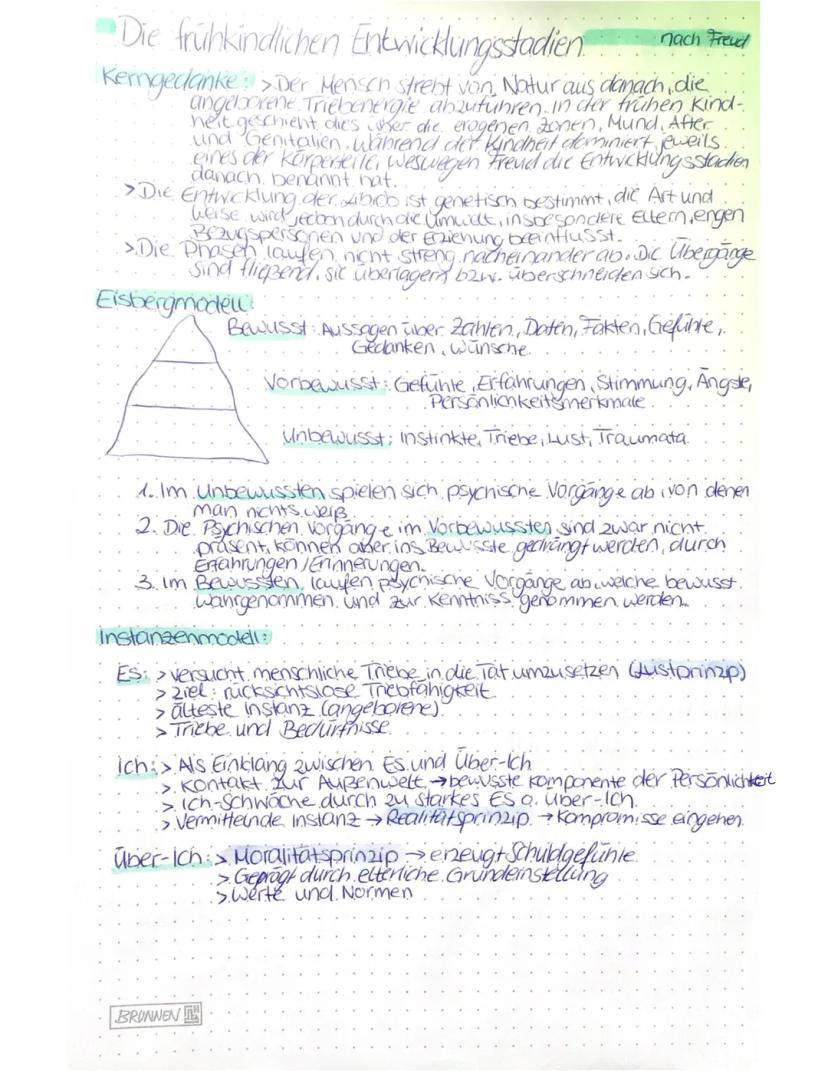 Die frühkindlichen Entwicklungsstadien nach Freud
Kerngedanke: > Der Mensch strebt von Natur aus danach, die
angeborene Triebenergie abzuführen. In der frühen Kind-
heit geschieht dies über die erogenen Zonen, Mund, After
und Genitalien. Während der Kindheit dominiert jeweils
eines der Körperteile, weswegen Freud die Entwicklungsstadien
danach benannt hat.
> Die Entwicklung der Libido ist genetisch bestimmt, die Art und
Weise wird jedoch durch die Umwelt, insbesondere Eltern, engen
Bezugspersonen und der Erziehung beeinflusst.
> Die Phasen laufen nicht streng nacheinander ab. Die Übergänge
sind fließend, sie überlagern bzw. überschneiden sich.
Eisbergmodell:
Bewusst: Aussagen über Zahlen, Daten, Fakten, Gefühle,
Gedanken, Wünsche
Vorbewusst: Gefühle, Erfahrungen, Stimmung, Ängste,
Persönlichkeitsmerkmale
Unbewusst: Instinkte, Triebe, Lust, Traumata
1. Im Unbewussten spielen sich psychische Vorgänge ab, von denen
man nichts weiß.
2. Die Psychischen Vorgänge im Vorbewussten sind zwar nicht
präsent, können aber ins Bewusste gedrängt werden, durch
Erfahrungen / Erinnerungen.
3. Im Bewussten laufen psychische Vorgänge ab, welche bewusst
wahrgenommen und zur Kenntniss genommen werden.
Instanzenmodell:
Es: > versucht menschliche Triebe in die Tat umzusetzen (Lustprinzip)
> Ziel: rücksichtslose Triebfähigkeit
> älteste Instanz (angeborene)
> Triebe und Bedürfnisse
Ich: > Als Einklang zwischen Es und Über-Ich
> Kontakt zur Außenwelt → bewusste Komponente der Persönlichkeit
> Ich-Schwäche durch zu starkes ES o. Über-Ich
> Vermittelnde Instanz → Realitätsprinzip → Kompromisse eingehen
Über-Ich: > Moralitätsprinzip → erzeugt Schuldgefühle
> Geprägt durch elterliche Grundeinstellung
> Werte und Normen
BRUNNEN